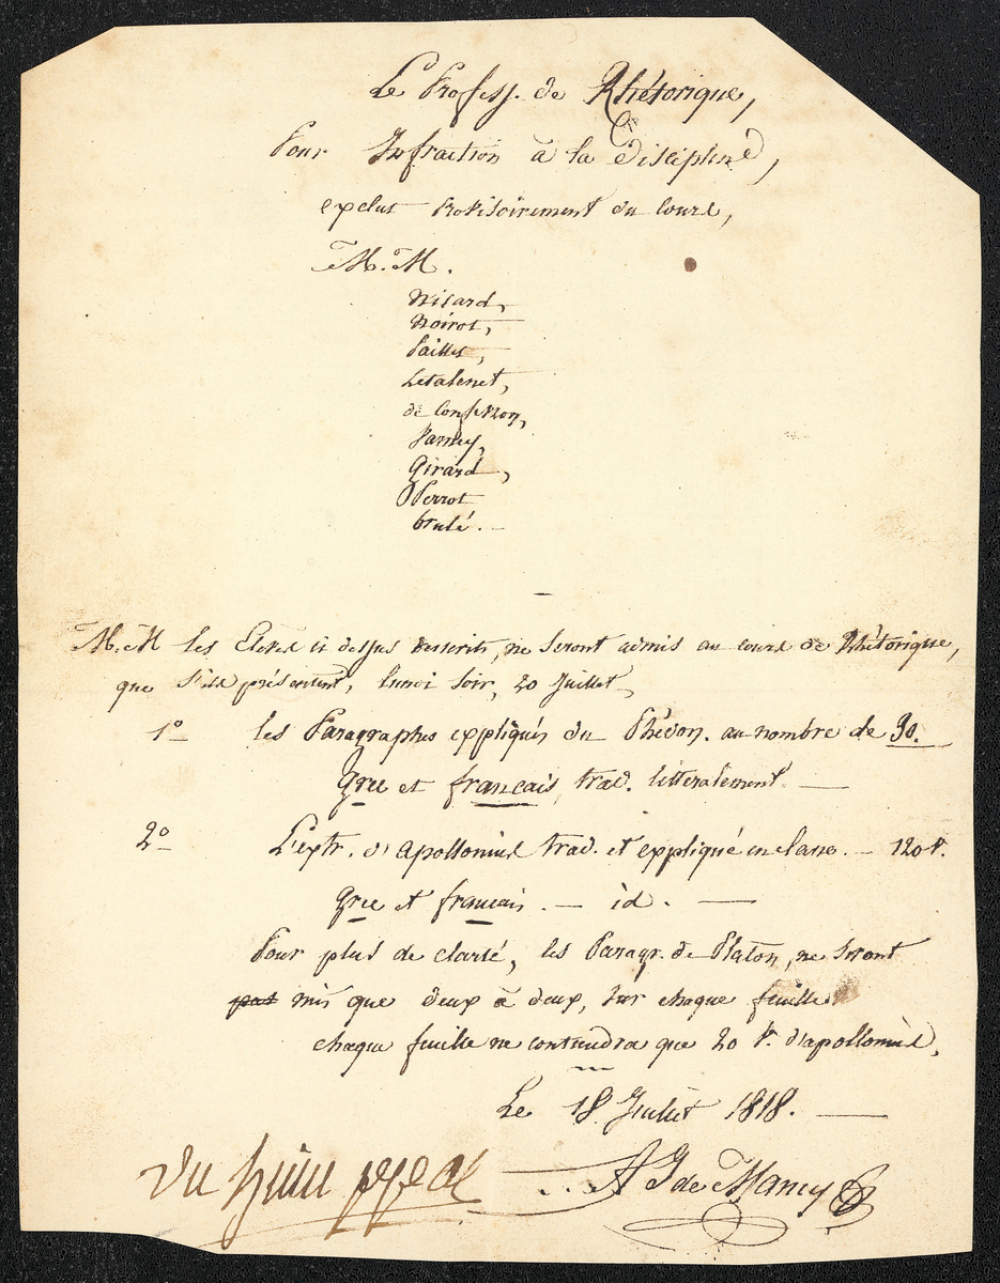 Le Profess. de Rhétorique,
Pour Infraction à la Discipline,
exclut Provisoirement du Cours,
M. M.
Nisard,
Noirot,
Paillet,
Letalenet,
de
Parney,
Girard,
Perrot
brulé.
M. M les Elèves ci dessus ne seront admis au cours de Rhétorique,
que s'ils présentent, lundi soir, 20 Juillet,
1° les Paragraphes expliqués du Phédon. au nombre de 30.
Grec et français, trad. littéralement.
2° L'extr. d'apollonius trad. et expliqué en classe. — 120 v.
grec et français. — id. —
Pour plus de clarté, les Paragr. de Platon, ne seront
pas mis que deux à deux, sur chaque feuille
chaque feuille ne contiendra que 20 v. d'apollonius.
Le 18. Juillet 1818. —
A J de Mancy